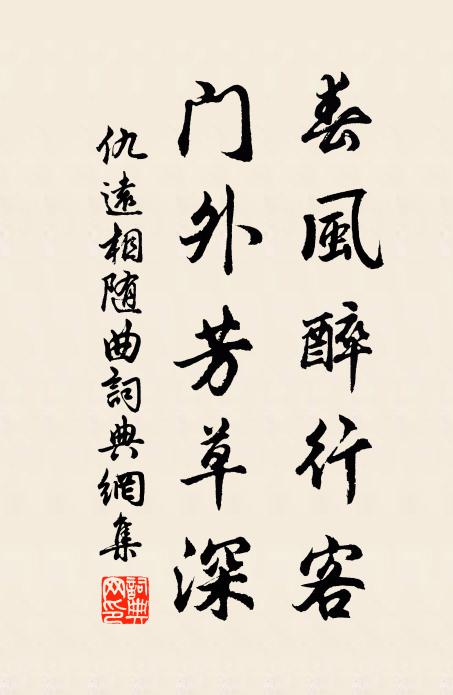 春風醉行客
门外芳草深
仇遠相随曲詞典網集
詞典网印